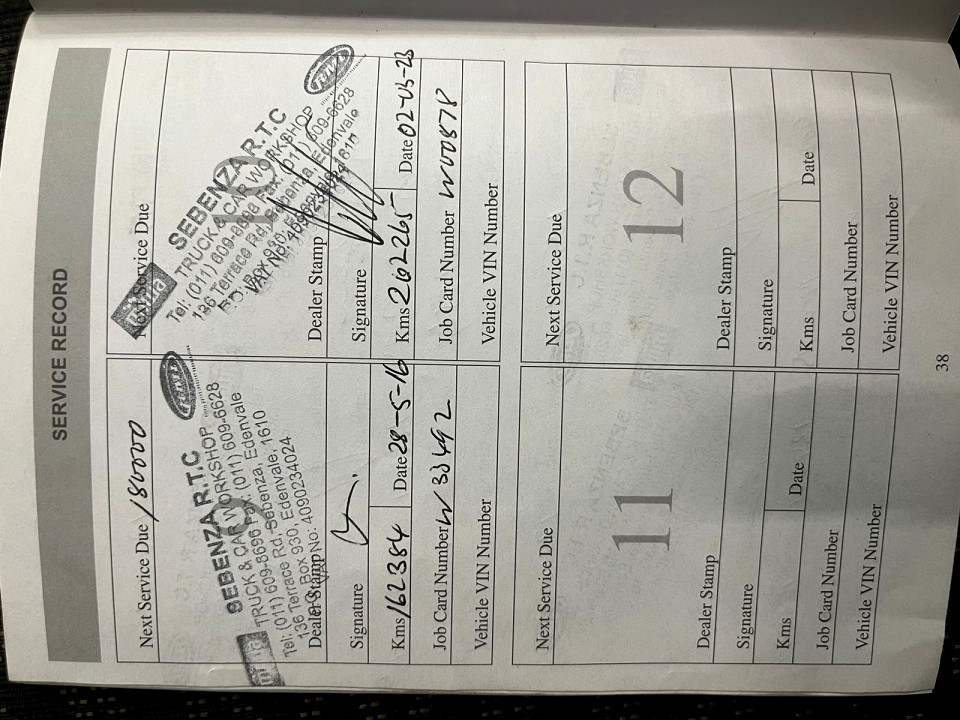 SERVICE RECORD
Next Service Due 180000
SEBENZA R.T.C
TRUCK & CAR WORKSHOP
Tel: (011) 609-8696 Fax: (011) 609-6628
136 Terrace Rd, Sebenza, Edenvale
Box 930, Edenvale, 1610
VAT No: 4090234024
Dealer Stamp
Signature
Kms 162384 Date 28-5-16
Job Card Number W 33492
Vehicle VIN Number
Next Service Due
SEBENZA R.T.C
TRUCK & CAR WORKSHOP
Tel: (011) 609-8696 Fax: (011) 609-6628
136 Terrace Rd, Sebenza, Edenvale
P.O. Box 930, Edenvale
VAT No: 4090234024
Dealer Stamp
Signature
Kms 262265 Date 02-03-23
Job Card Number W00878
Vehicle VIN Number
Next Service Due
11
Dealer Stamp
Signature
Kms Date
Job Card Number
Vehicle VIN Number
Next Service Due
12
Dealer Stamp
Signature
Kms Date
Job Card Number
Vehicle VIN Number
38